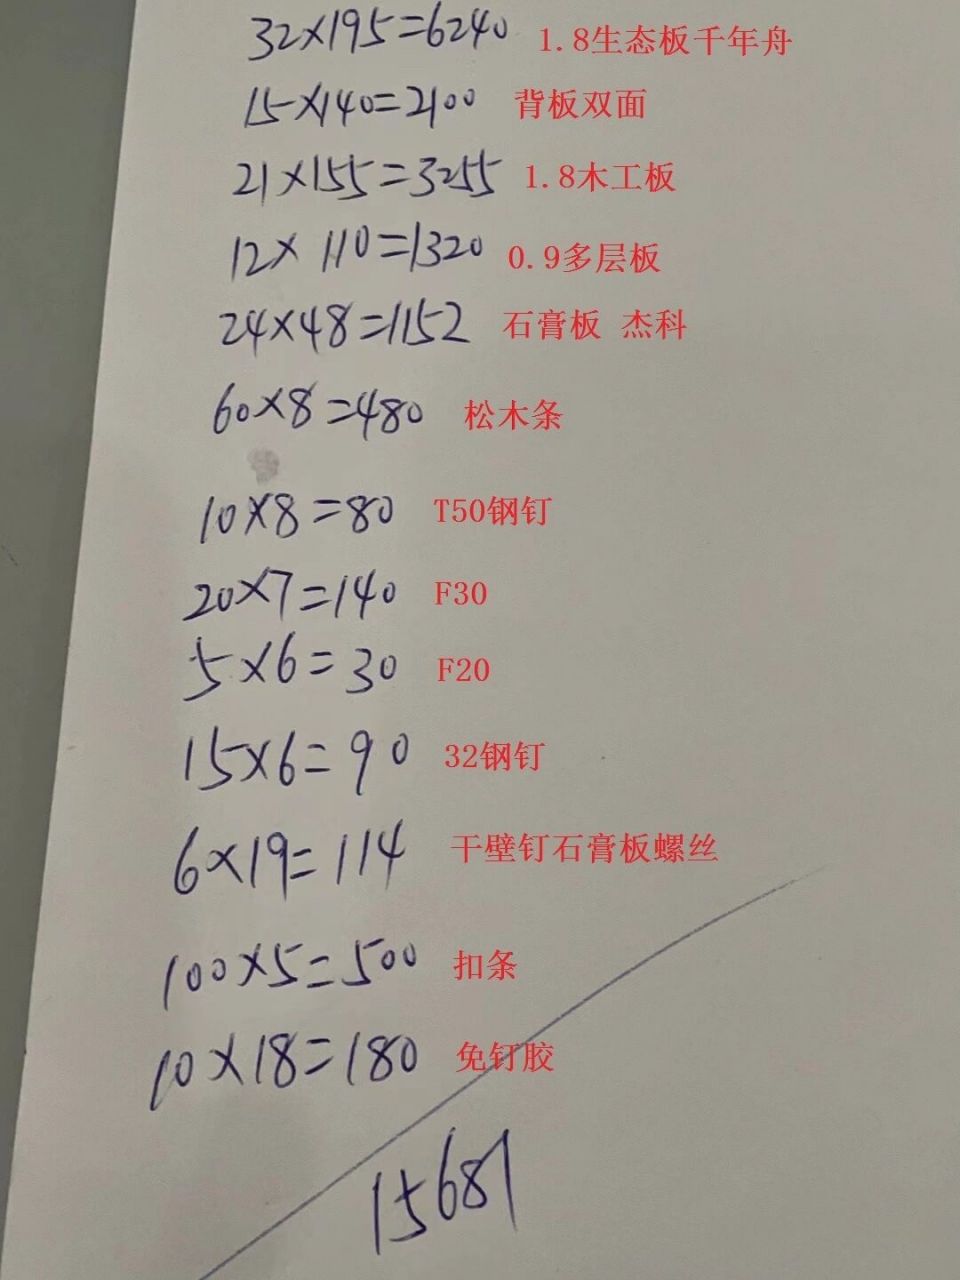 32×195=6240 1.8生态板千年舟
15×140=2100 背板双面
21×155=3255 1.8木工板
12×110=1320 0.9多层板
24×48=1152 石膏板 杰科
60×8=480 松木条
10×8=80 T50钢钉
20×7=140 F30
5×6=30 F20
15×6=90 32钢钉
6×19=114 干壁钉石膏板螺丝
100×5=500 扣条
10×18=180 免钉胶
15681